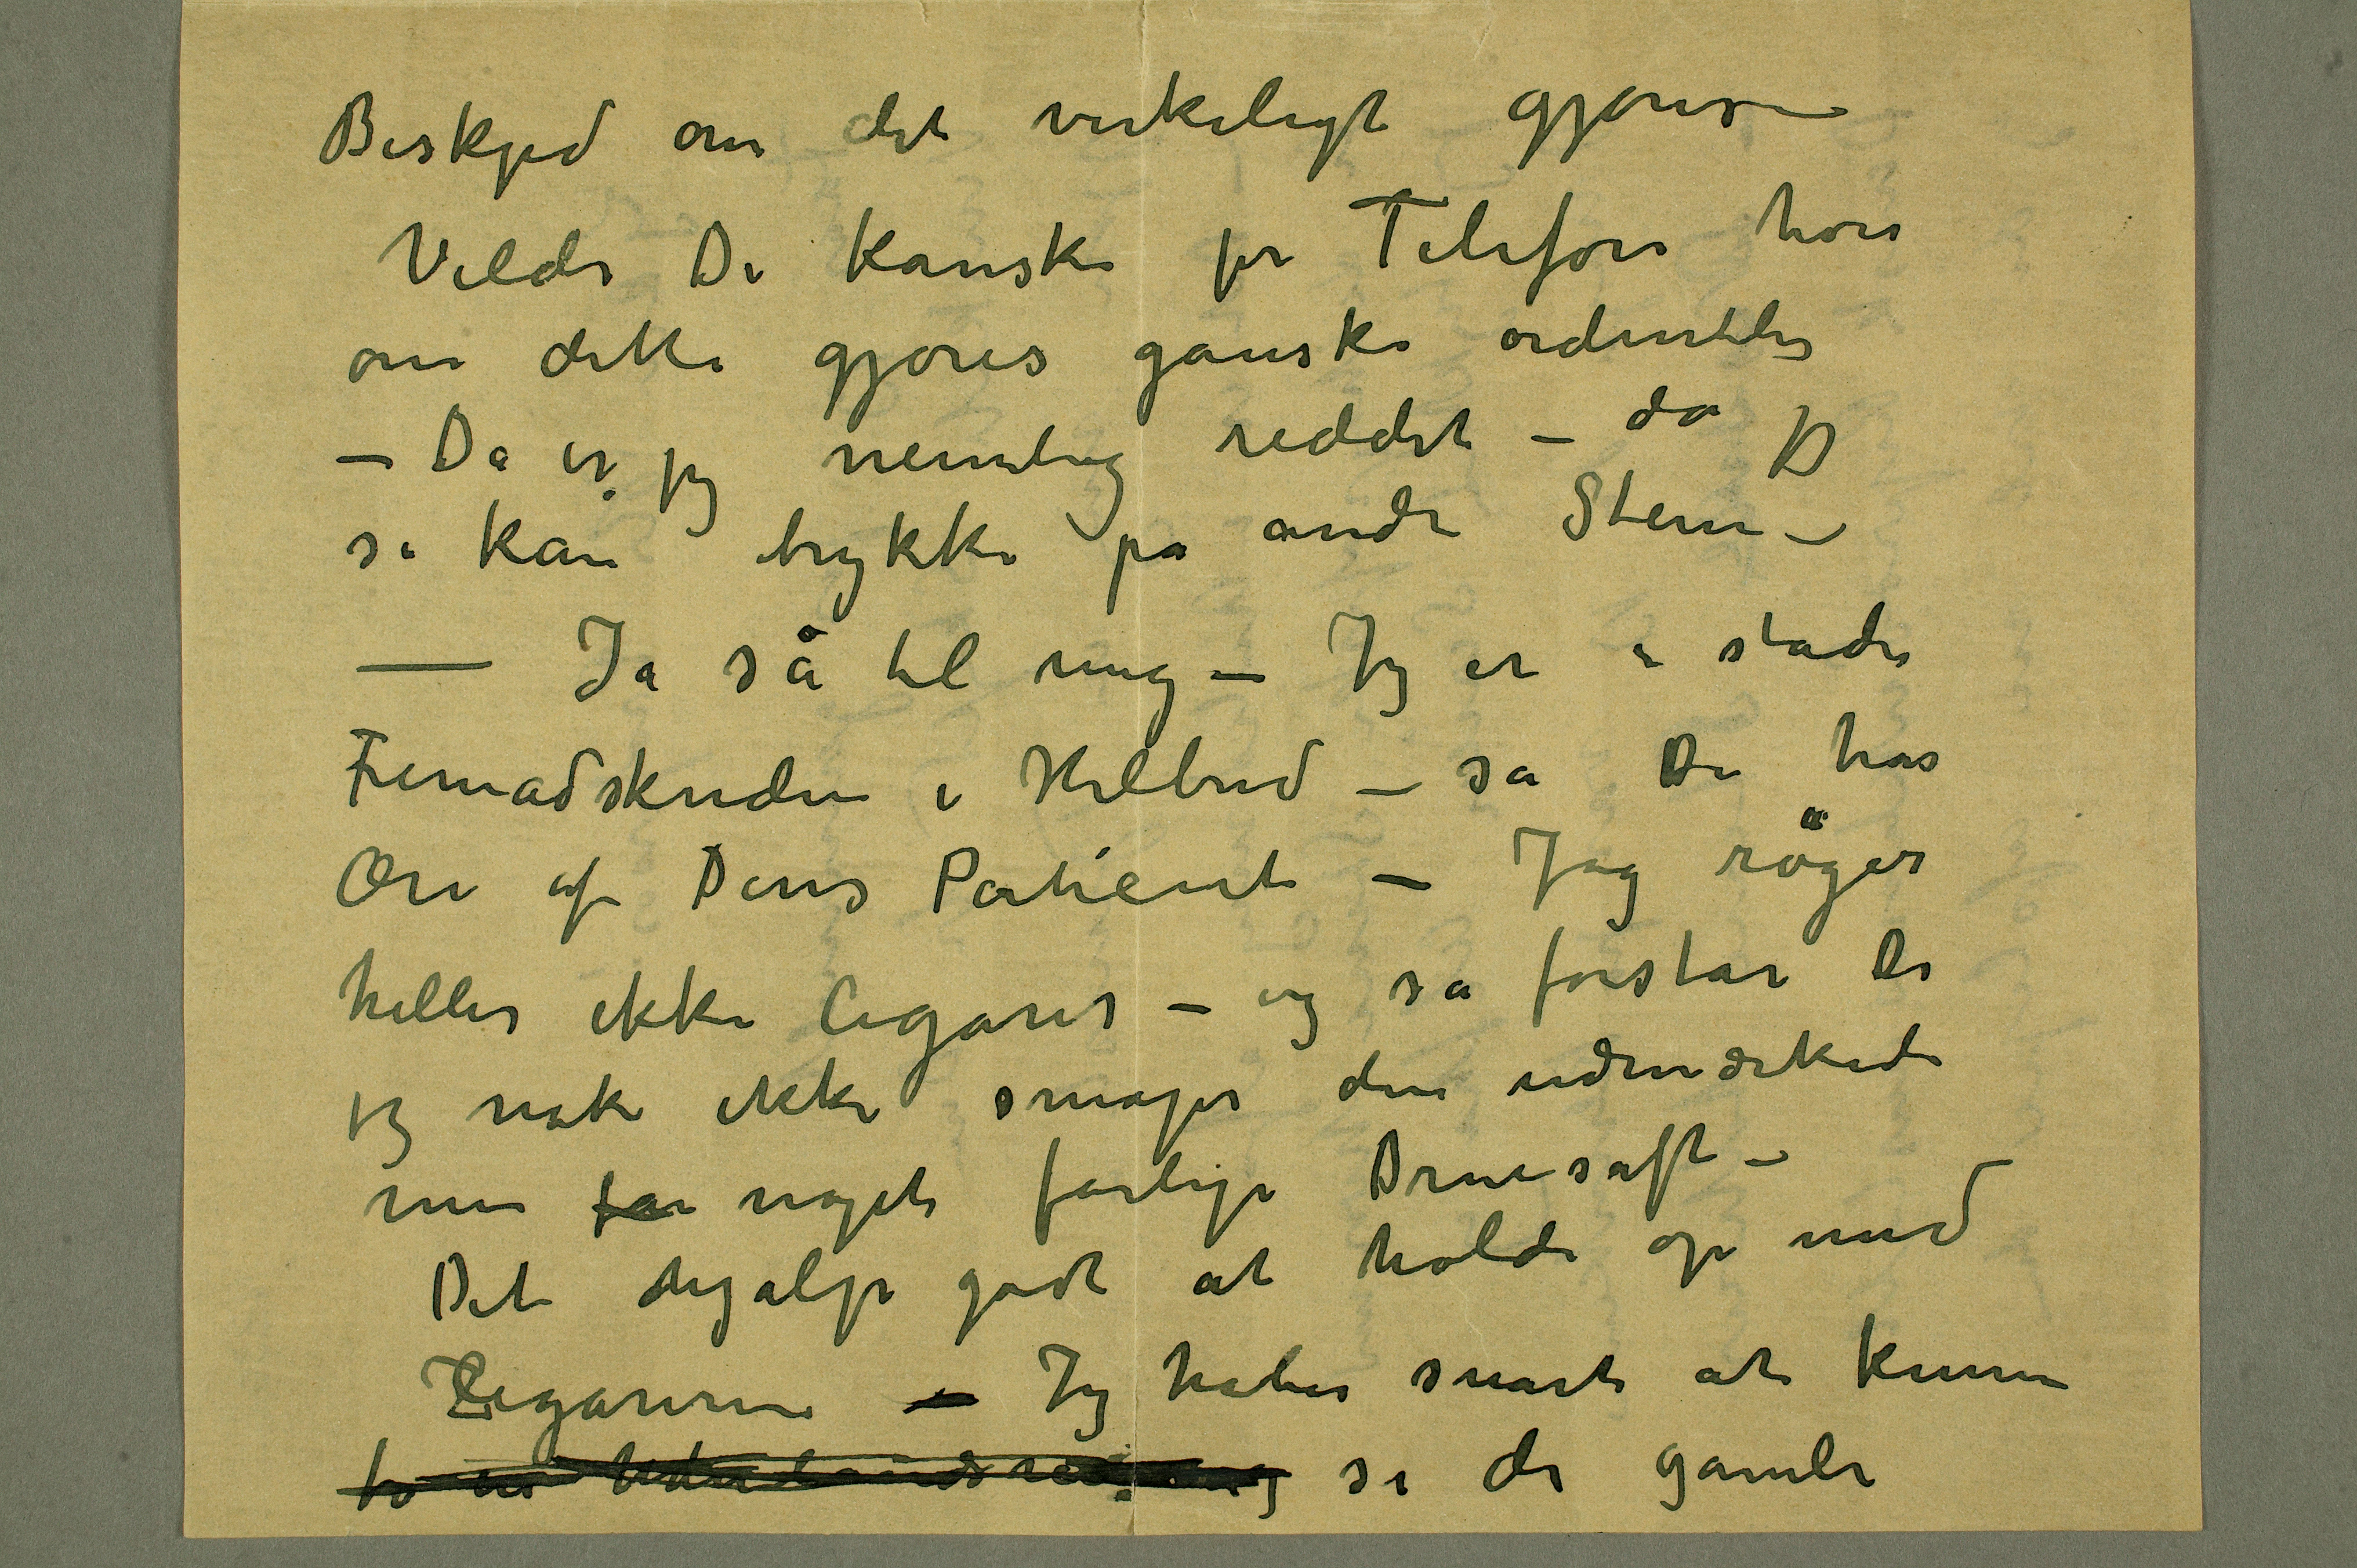 Beskjed om det virkeligt gjøres –
Vilde De kanske pr Telefon høre
om dette gjøres ganske ordentlig
– Da er jeg nemlig reddet – da jeg
så kan trykke på andre Sten –
— Ja så til mig – Jeg er i stadi
Fremadskriden i Helbred – så De har
Ære af Deres Patient – Jeg røger
heller ikke Cigarer – og så forstår De
jeg nok ikke smager den udmærkede
men noget farlige Druesaft –
Det hjalp godt at holde op med
Cigarerne – Jeg håber snart at kunne
se de gamle